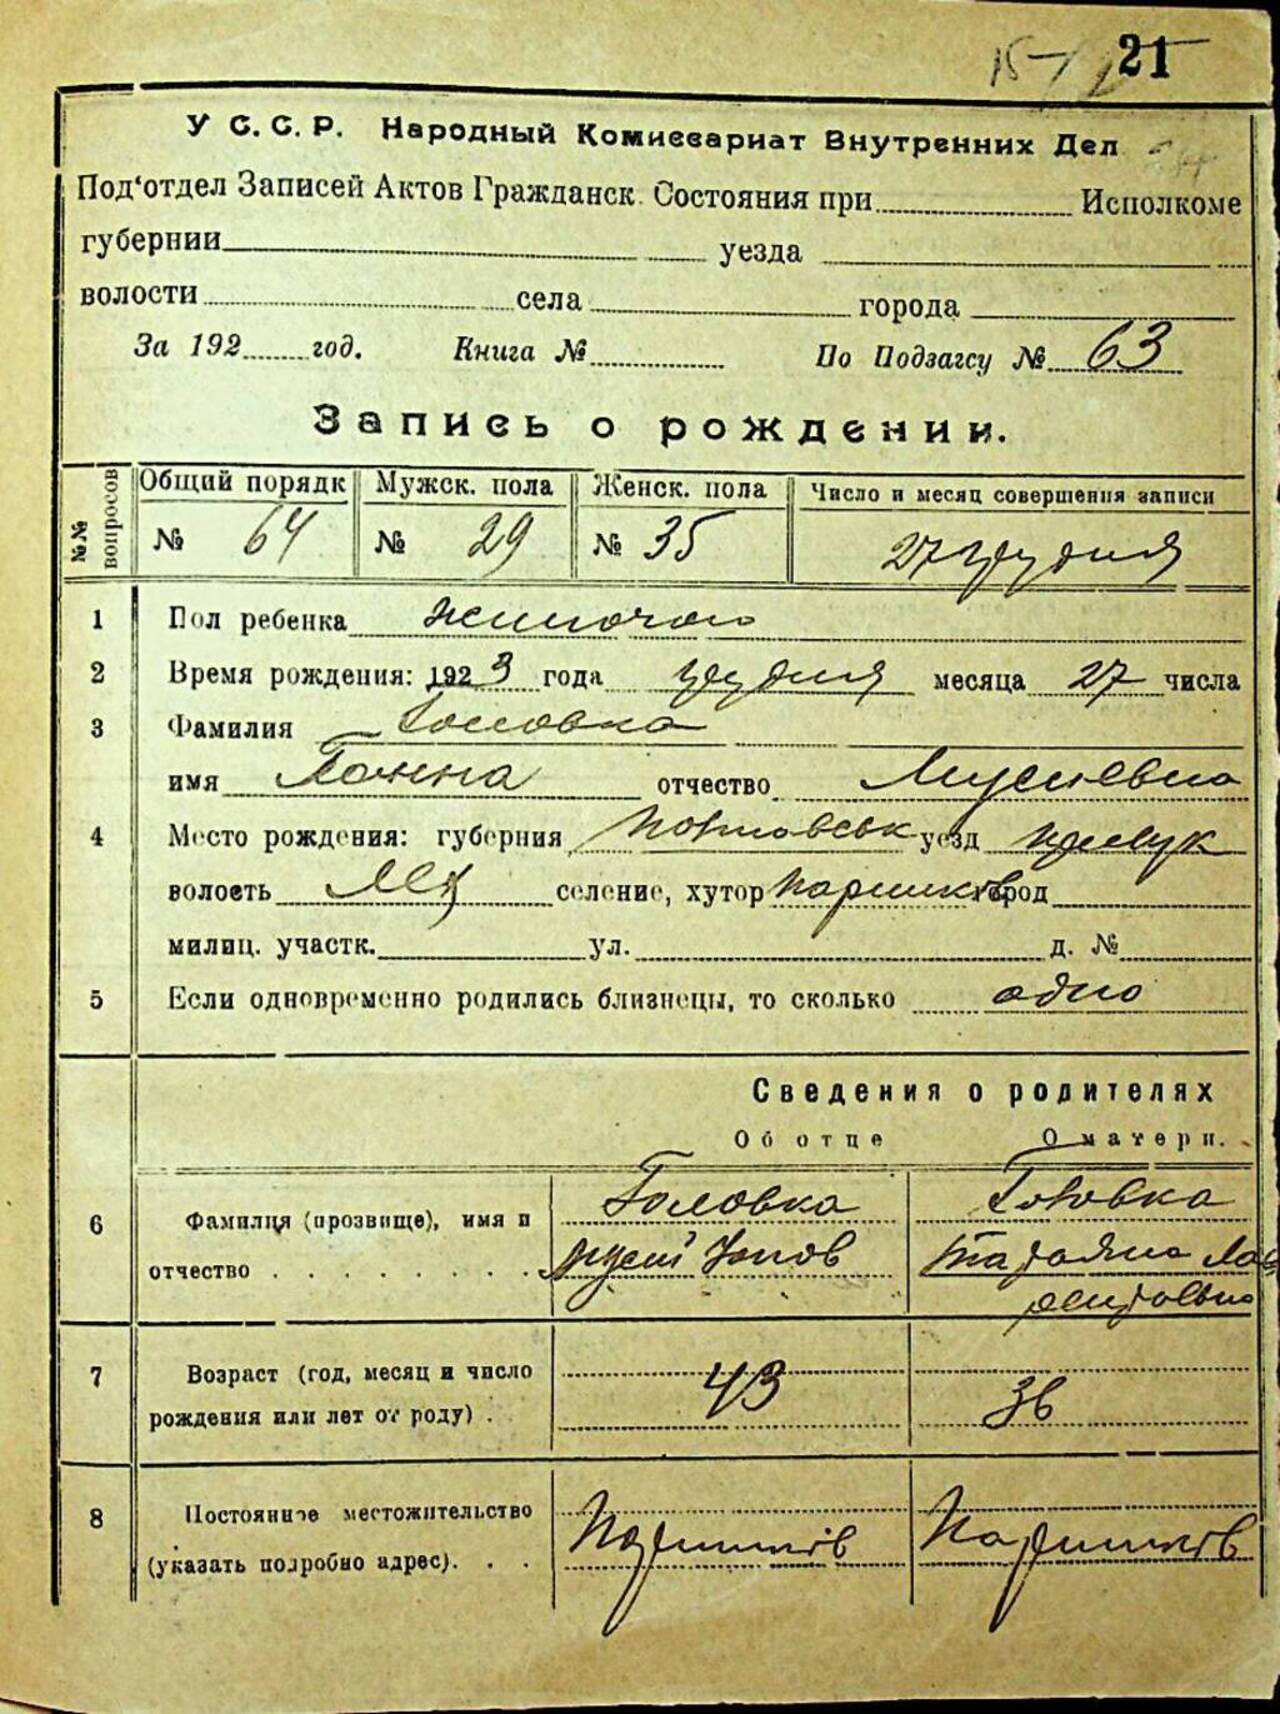 21
У С.С.Р. Народный Комиссариат Внутренних Дел
Под'отдел Записей Актов Гражданск. Состояния при Исполкоме
губернии уезда
волости села города
За 192 год. Книга № По Подзагсу № 63
Запись о рождении.
№№ вопросов Общий порядк Мужск. пола Женск. пола Число и месяц совершения записи
№ 64 № 29 № 35 27 грудня
1 Пол ребенка жиночого
2 Время рождения: 1923 года грудня месяца 27 числа
3 Фамилия Головка
имя Ганна отчество Мусиевна
4 Место рождения: губерния уезд
волость селение, хутор город
милиц. участк. ул. д. №
5 Если одновременно родились близнецы, то сколько одно
Сведения о родителях
Об отце О матери.
6 Фамилия (прозвище), имя и Головка Головка
отчество Мусій
7 Возраст (год, месяц и число
рождения или лет от роду) . 43 36
8 Постоянное местожительство
(указать подробно адрес). . .